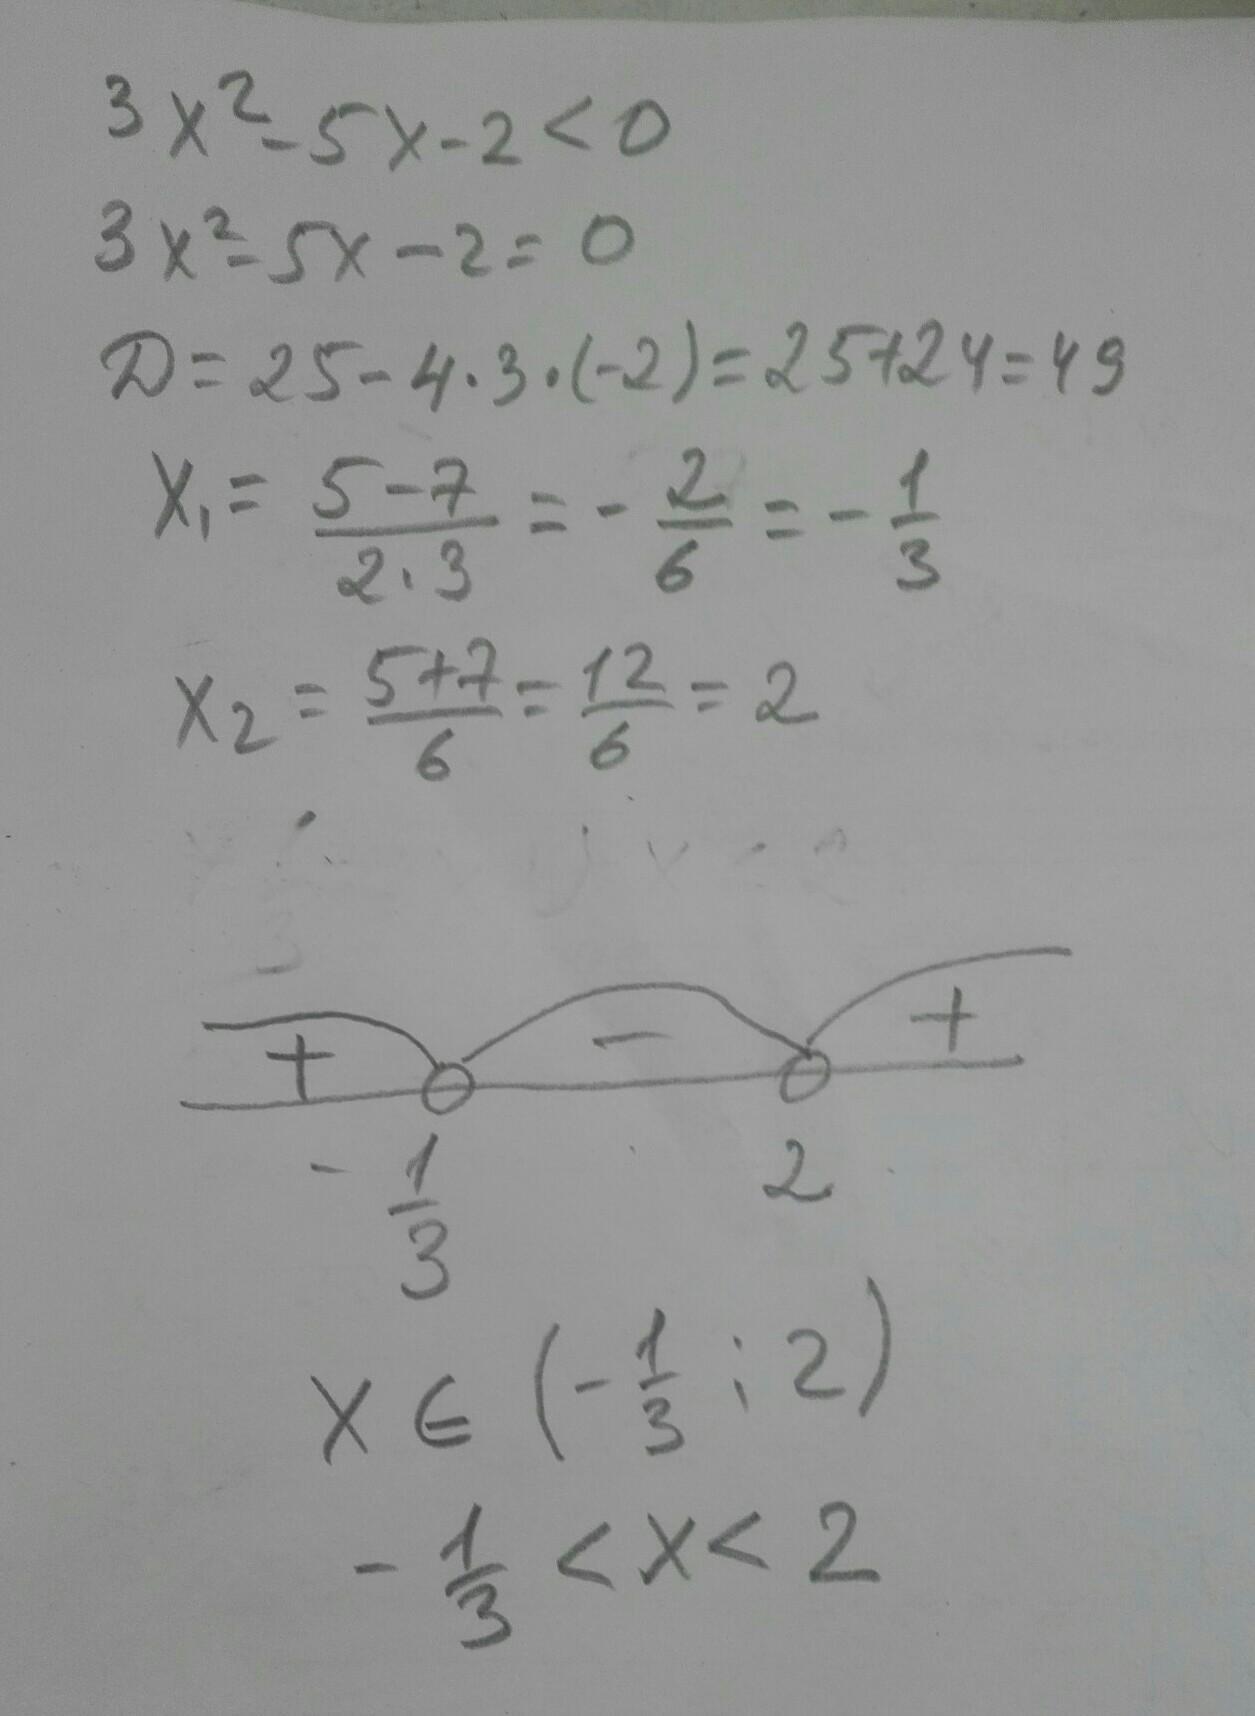 3x² - 5x - 2 < 0
3x² - 5x - 2 = 0
D = 25 - 4·3·(-2) = 25+24 = 49
x₁ = (5-7)/(2·3) = -2/6 = -1/3
x₂ = (5+7)/6 = 12/6 = 2
+ - +
-1/3 2
x ∈ (-1/3 ; 2)
-1/3 < x < 2